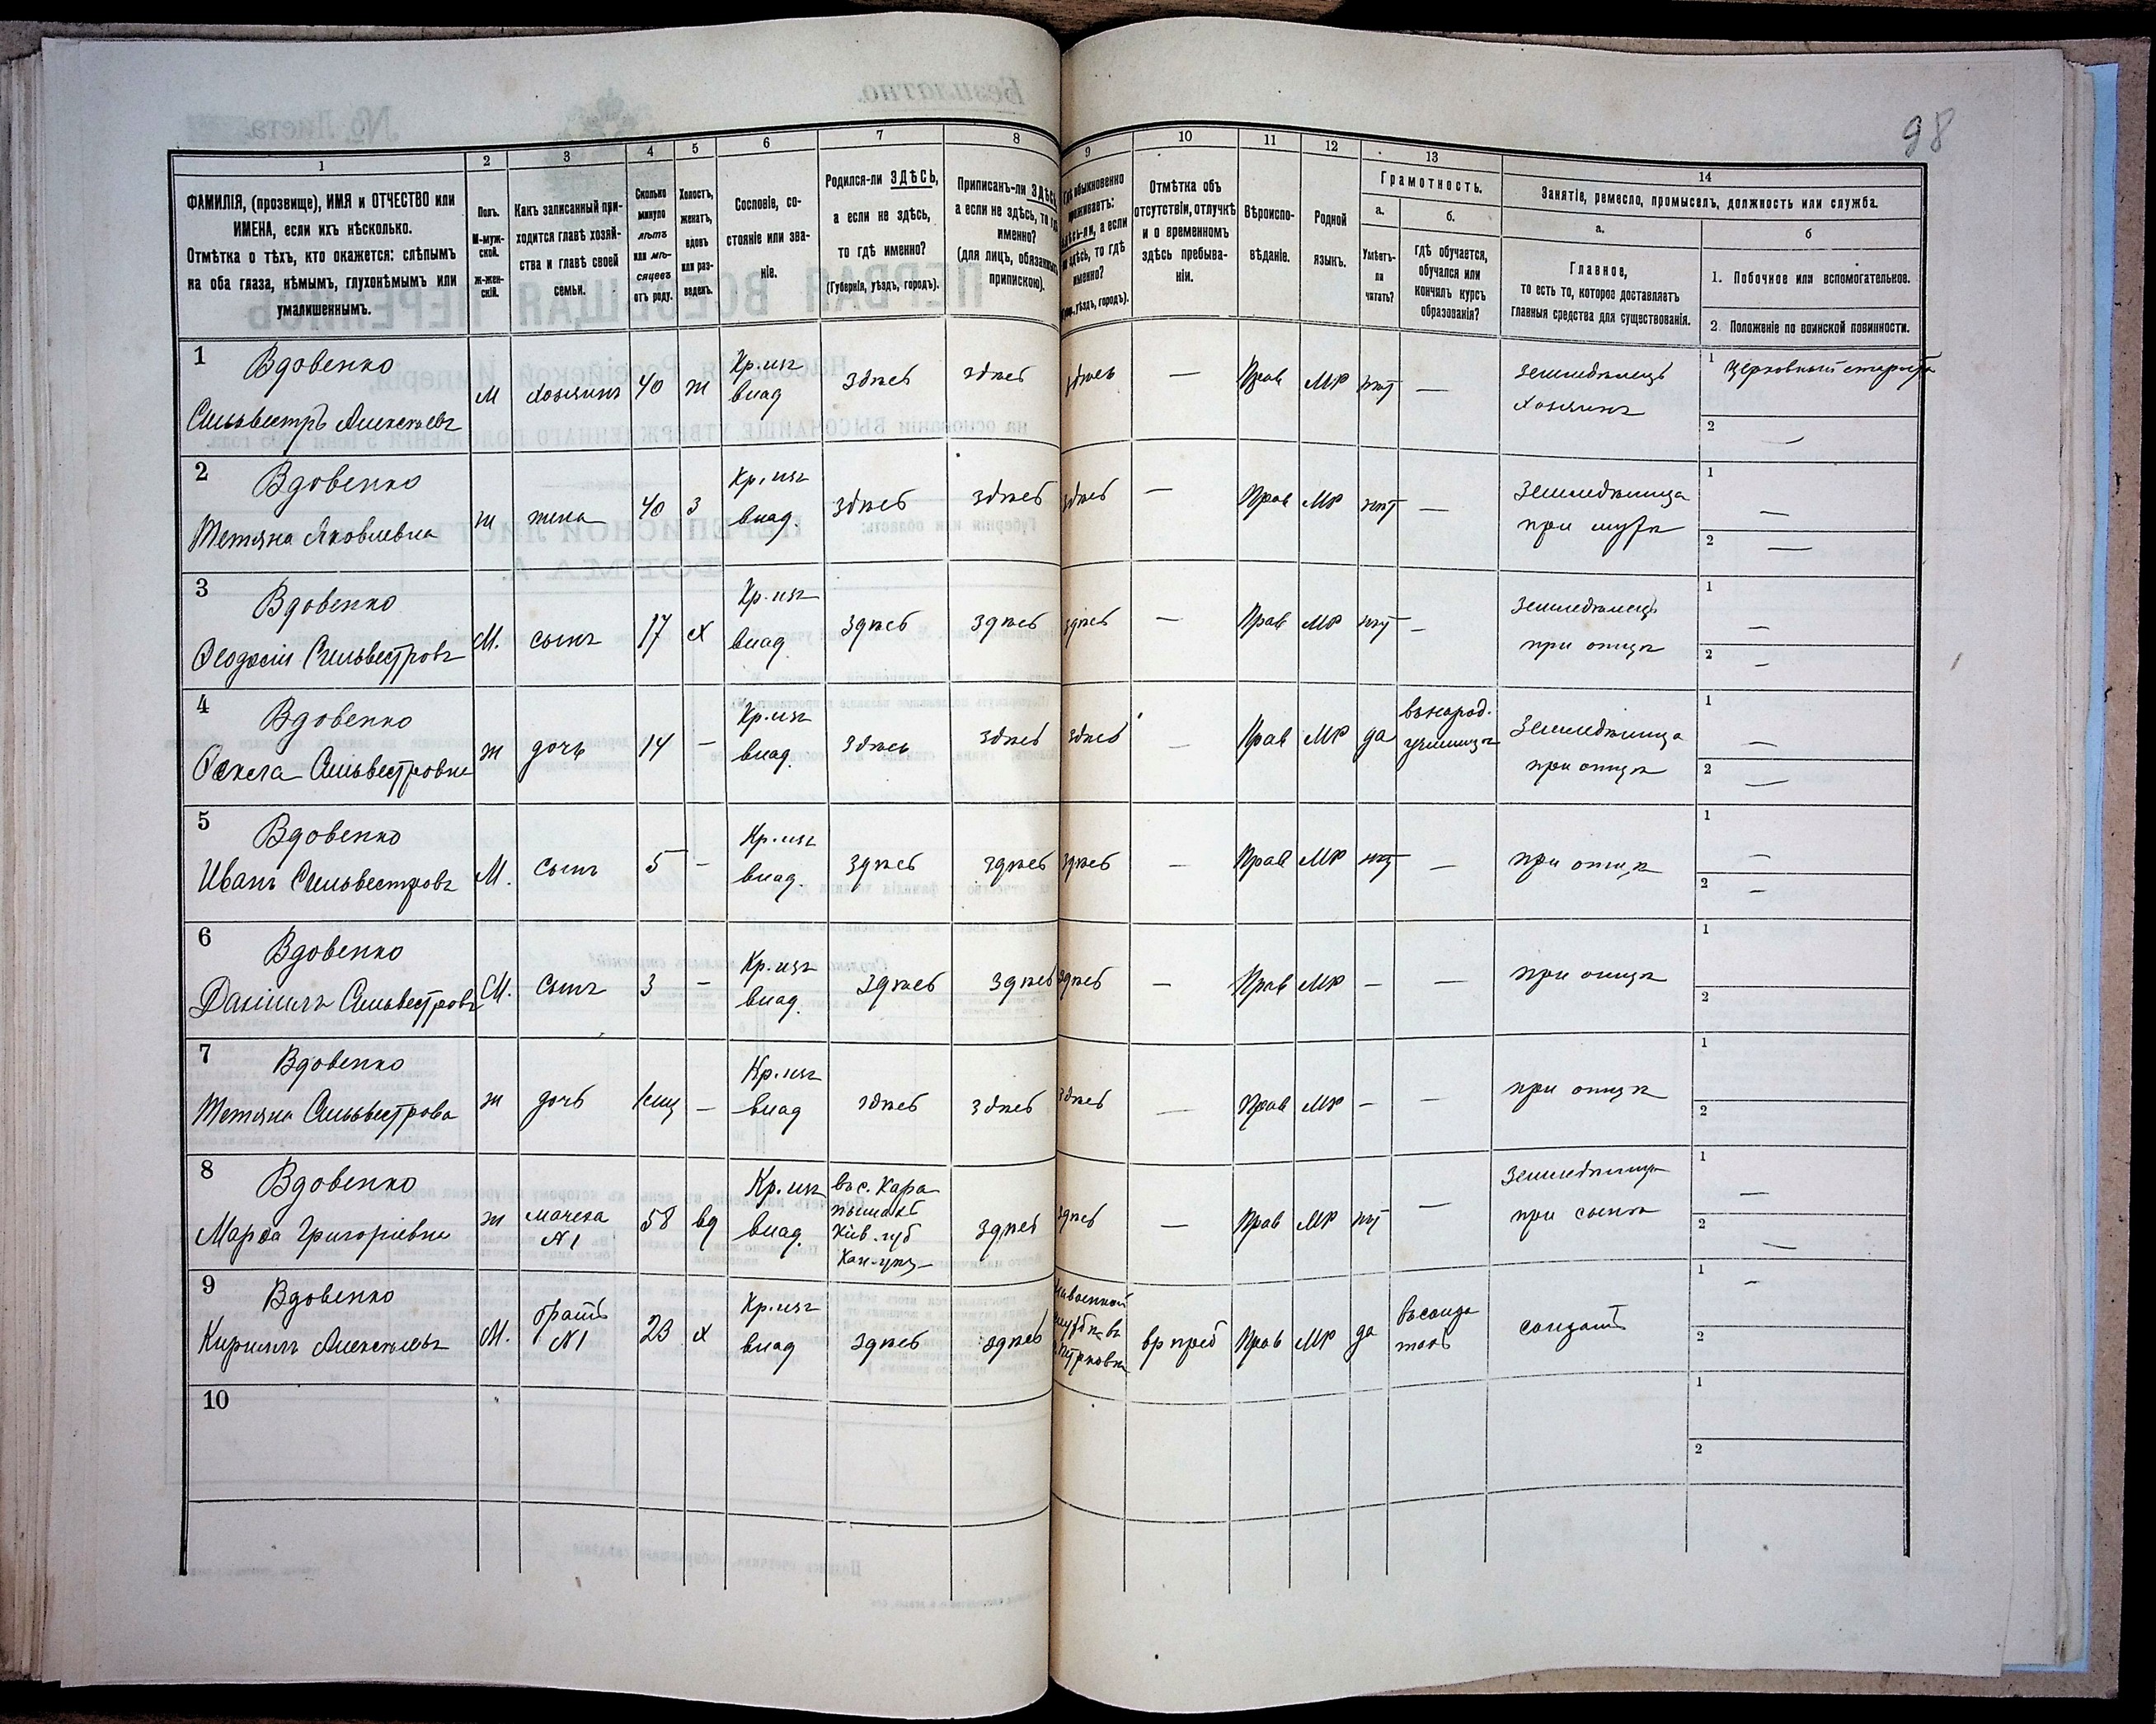 98
1
2
3
4
5
6
7
8
9
10
11
12
13
14
ФАМИЛІЯ, (прозвище), ИМЯ и ОТЧЕСТВО или
ИМЕНА, если ихъ нѣсколько.
Отмѣтка о тѣхъ, кто окажется: слѣпымъ
на оба глаза, нѣмымъ, глухонѣмымъ или
умалишеннымъ.
Полъ.
М-муж-
ской.
Ж-жен-
скій.
Какъ записанный при-
ходится главѣ хозяй-
ства и главѣ своей
семьи.
Сколько
минуло
лѣтъ
или мѣ-
сяцевъ
отъ роду.
Холостъ,
женатъ,
вдовъ
или раз-
веденъ.
Сословіе, со-
стояніе или зва-
ніе.
Родился-ли ЗДѢСЬ,
а если не здѣсь,
то гдѣ именно?
(Губернія, уѣздъ, городъ).
Приписанъ-ли ЗДѢСЬ,
а если не здѣсь, то гдѣ
именно?
(для лицъ, обязанныхъ
припискою).
Гдѣ обыкновенно
проживаетъ:
здѣсь-ли, а если
не здѣсь, то гдѣ
именно?
уѣздъ, городъ).
Отмѣтка объ
отсутствіи, отлучкѣ
и о временномъ
здѣсь пребыва-
ніи.
Вѣроиспо-
вѣданіе.
Родной
языкъ.
Грамотность.
а.
Умѣетъ-
ли
читать?
б.
гдѣ обучается,
обучался или
кончилъ курсъ
образованія?
Занятіе, ремесло, промыселъ, должность или служба.
а.
Главное,
то есть то, которое доставляетъ
главныя средства для существованія.
б
1. Побочное или вспомогательное.
2. Положеніе по воинской повинности.
1 Вдовенко
Сильвестръ Алексѣевъ
М хозяинъ 40 ж Кр. изъ влад здѣсь здѣсь здѣсь — Прав МР нѣт —
земледѣлецъ
хозяинъ
1 Церковный староста
2 —
2 Вдовенко
Тетяна Яковлевна
ж жена 40 з Кр. изъ влад. здѣсь здѣсь здѣсь — Прав МР нѣт —
Земледѣлица
при мужѣ
1 —
2 —
3 Вдовенко
Ѳеодосій Сильвестровъ
М. сынъ 17 х Кр. изъ влад. здѣсь здѣсь здѣсь — Прав МР нѣт —
Земледѣлецъ
при отцѣ
1 —
2 —
4 Вдовенко
Ѳекла Сильвестровна
ж дочь 14 — Кр. изъ влад. здѣсь здѣсь здѣсь — Прав МР да
въ народ.
училищѣ
Земледѣлица
при отцѣ
1 —
2 —
5 Вдовенко
Иванъ Сильвестровъ
М. сынъ 5 — Кр. изъ влад. здѣсь здѣсь здѣсь — Прав МР нѣт —
при отцѣ
1 —
2 —
6 Вдовенко
Даніилъ Сильвестровъ
М. сынъ 3 — Кр. изъ влад. здѣсь здѣсь здѣсь — Прав МР — —
при отцѣ
1
2
7 Вдовенко
Тетяна Сильвестрова
ж дочь — Кр. изъ влад здѣсь здѣсь здѣсь — Прав МР — —
при отцѣ
1
2
8 Вдовенко
Марѳа Григоріевна
ж мачеха
№1
58 вд Кр. изъ влад.
въ с. Кара
пышахъ
Кіев. губ
Кан. уѣз
здѣсь здѣсь — Прав МР нѣт —
Земледѣлица
при сынѣ
1 —
2 —
9 Вдовенко
Кириллъ Алексѣевъ
М. братъ
№1
23 х Кр. изъ влад здѣсь здѣсь
на военной
службѣ въ
вр преб Прав МР да
въ солда
тахъ
солдатъ
1 —
2
10
1
2